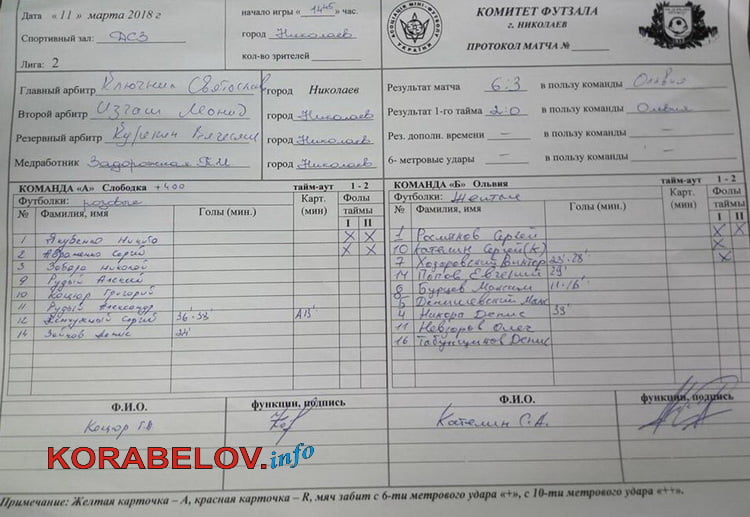 Дата «11» марта 2018 г
Спортивный зал: ДСЗ
Лига: 2
начало игры «14 45» час.
город Николаев
кол-во зрителей
АСОЦІАЦІЯ МІНІ-ФУТБОЛУ УКРАЇНИ
КОМИТЕТ ФУТЗАЛА
г. НИКОЛАЕВ
ПРОТОКОЛ МАТЧА №
Главный арбитр Ключник Святослав
город Николаев
Второй арбитр Изгаш Леонид
город Николаев
Резервный арбитр Курекин Вячеслав
город Николаев
Медработник Задорожная Т.М
город Николаев
Результат матча 6:3 в пользу команды Ольвия
Результат 1-го тайма 2:0 в пользу команды Ольвия
Рез. дополн. времени — в пользу команды —
6- метровые удары — в пользу команды —
КОМАНДА «А» Слободка +400 тайм-аут 1 - 2
Футболки: розовые
№ Фамилия, имя Голы (мин.) Карт. (мин) Фолы таймы I II
1 Якубенко Никита X X
2 Авраменко Сергей X X
3 Забара Николай
9 Рудый Алексей
10 Коцюр Григорий
11 Рудый Александр
12 Жемчужный Сергей 36'.38' А13'
14 Зайков Денис 24'
КОМАНДА «Б» Ольвия тайм-аут 1 - 2
Футболки: Желтые
№ Фамилия, имя Голы (мин.) Карт. (мин) Фолы таймы I II
1 Росляков Сергей X X
10 Кателин Сергей (К) X
7 Ходоровский Виктор 23'.28' X
14 Попов Евгений 29'
8 Бурцев Максим 11'.16'
5 Денишевский Макс
4 Никора Денис 39'
11 Невзоров Олег
16 Табунщиков Денис
Ф.И.О. функции, подпись
Коцюр Г.В
Ф.И.О. функции, подпись
Кателин С.А.
KORABELOV.info
Примечание: Желтая карточка – А, красная карточка – R, мяч забит с 6-ти метрового удара «+», с 10-ти метрового удара «++».